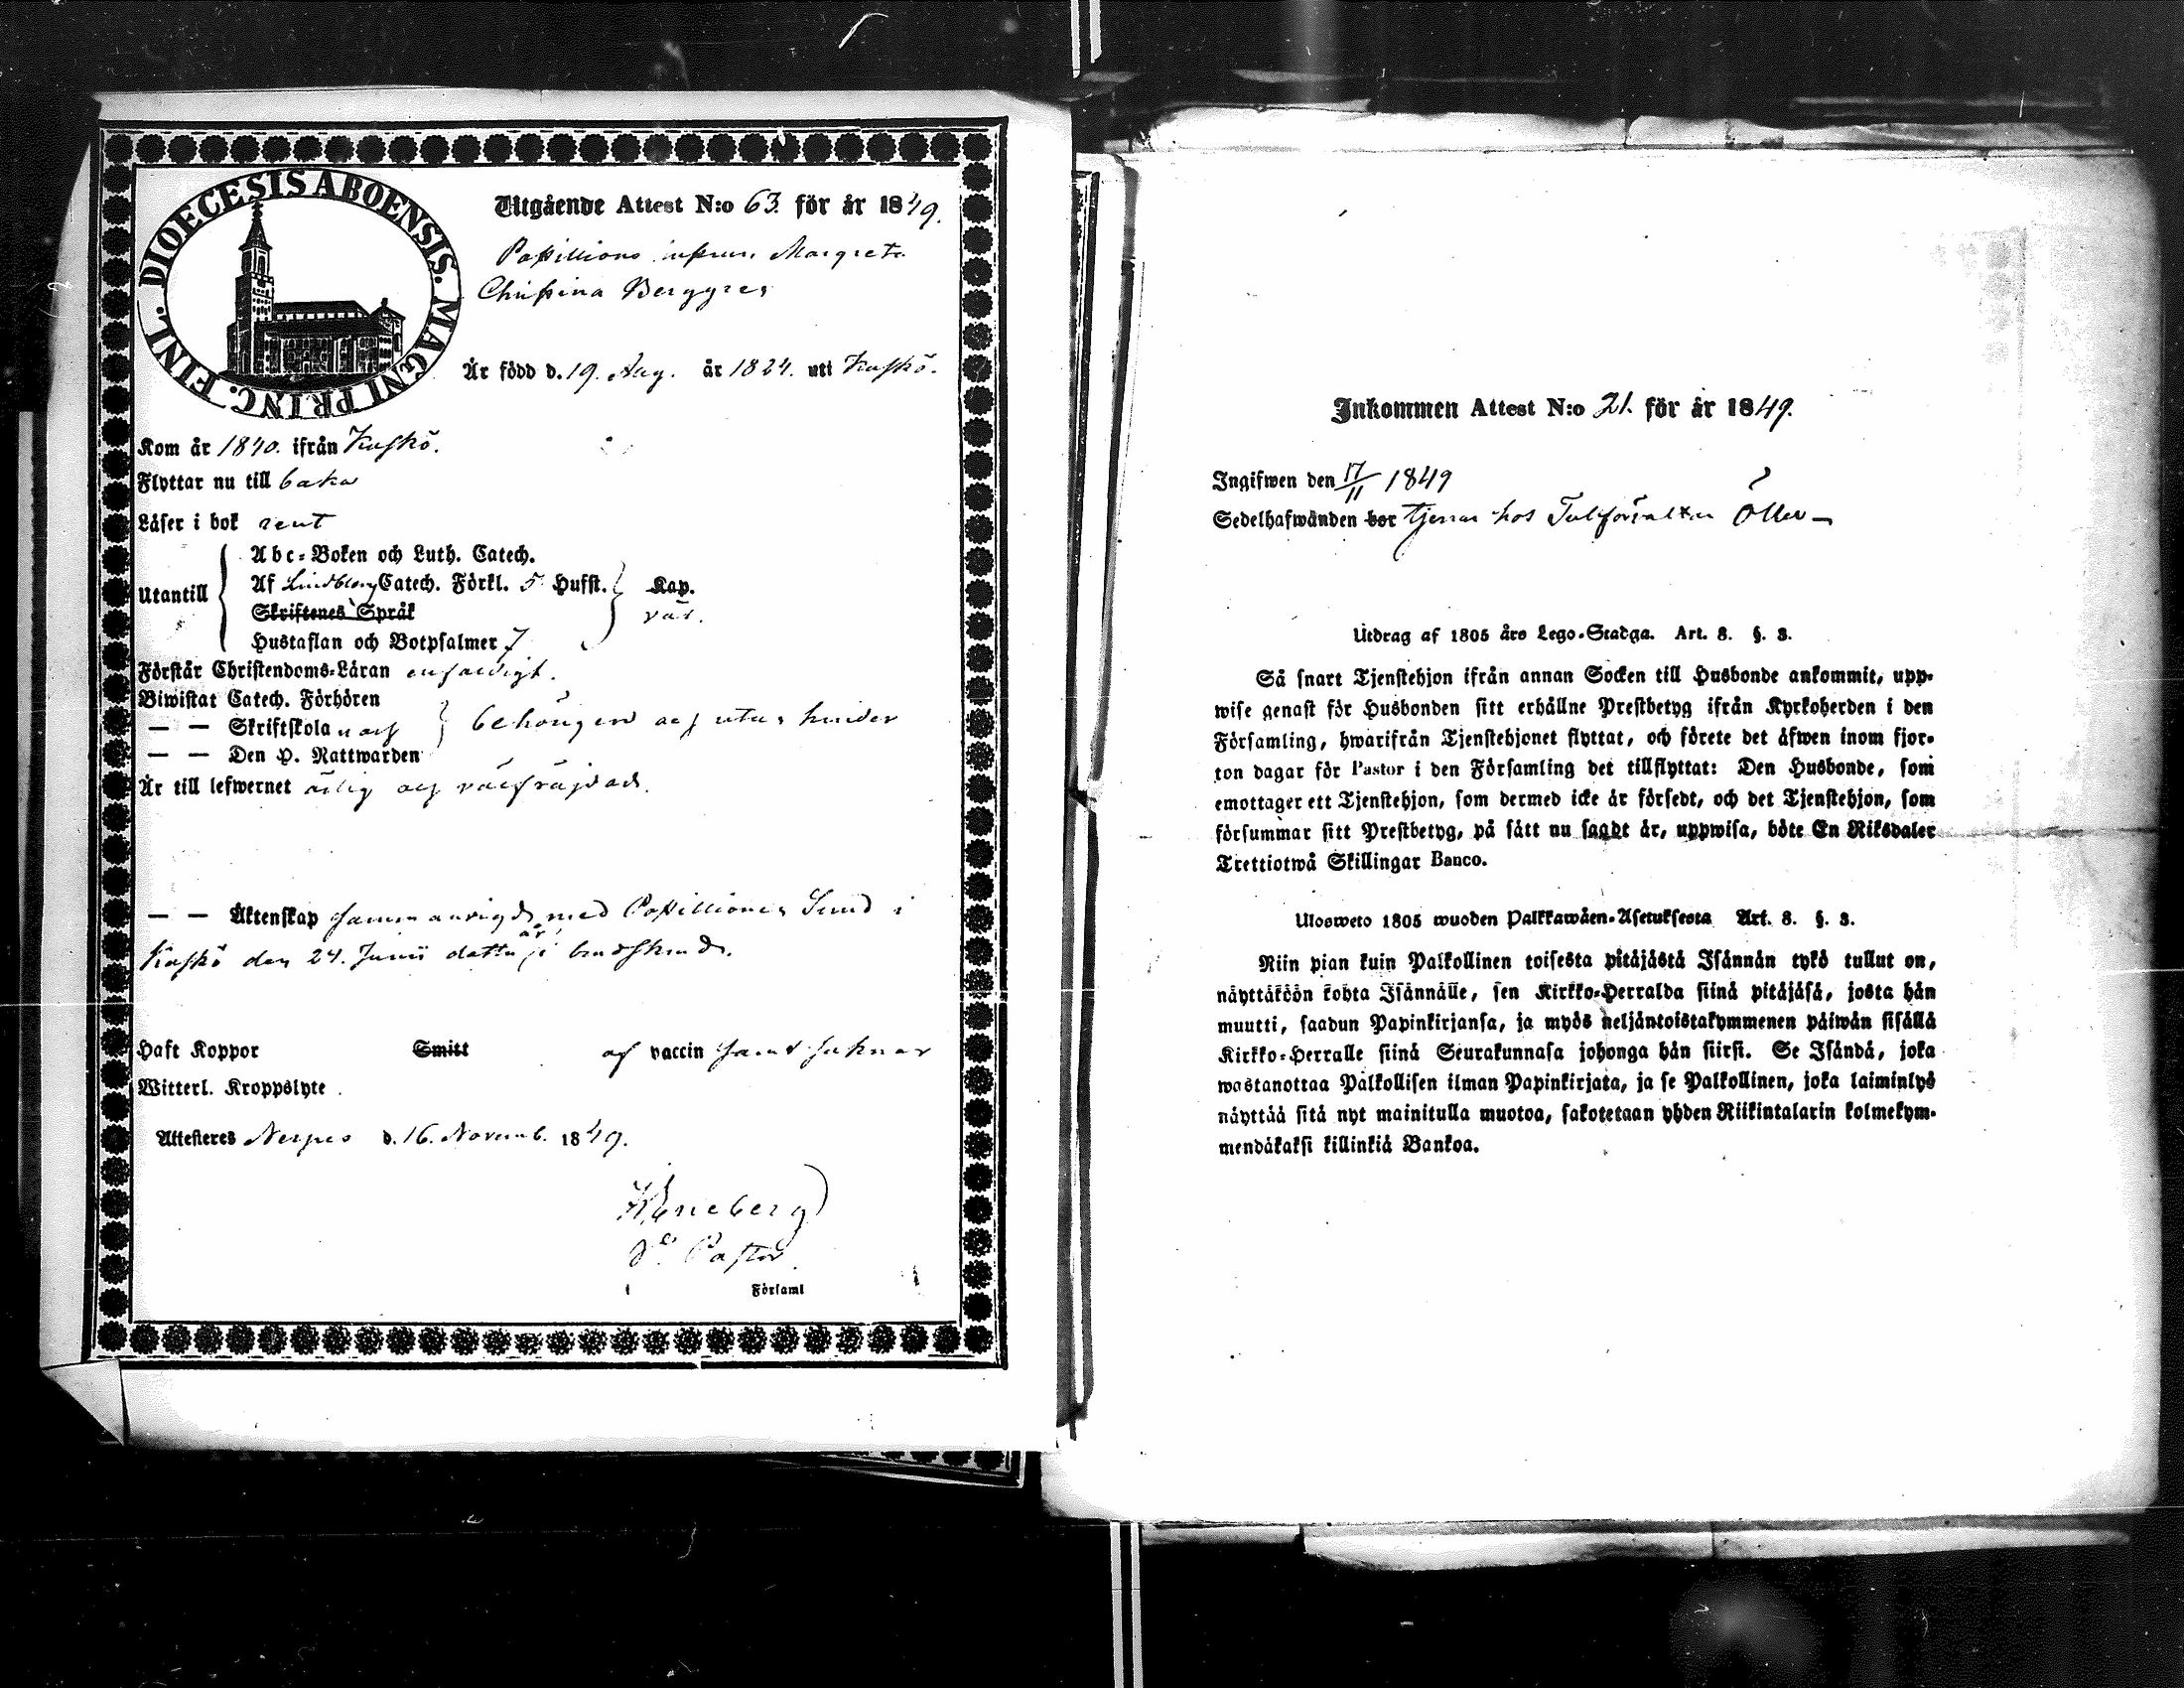 DIOECESIS ABOENSIS. MAGNI PRINC. FINL.
Utgående Attest N:o 63. för år 1849.
Margreta
Christina Berggren
År född d. 19. Aug. år 1824. uti Kaskö.
Kom år 1840. ifrån Kaskö.
Flyttar nu till baka
Låser i bok rent
Utantill
Abc-Boken och Luth. Catech.
Af Lindblom Catech. Förkl. 5 Hufst.
Skriftenes Språk
Hustaflan och Botpsalmer 7
Kap.
väl.
Förstår Christendoms-Låran enfaldigt.
Biwistat Catech. Förhören
— — Skriftskola och
— — Den H. Nattwarden
behörigen och utan hinder
År till lefwernet ärlig och välfräjdad.
— — Åktenskap sammanvigd med Lund i
Kaskö den 24. Junii detta år
Haft Koppor Smitt af vaccin
Witterl. Kroppslyte
Attesteres Nerpes d. 16. Novemb. 1849.
Pastor
Församl
Inkommen Attest N:o 21. för år 1849.
Ingifwen den 17/11 1849
Sedelhafwanden bor tjenar hos Tullförvaltar Öller
Utdrag af 1805 års Lego-Stadga. Art. 8. §. 3.
Så snart Tjenstehjon ifrån annan Socken till Husbonde ankommit, upp-
wise genast för Husbonden sitt erhållne Prestbetyg ifrån Kyrkoherden i den
Församling, hwarifrån Tjenstehjonet flyttat, och förete det åfwen inom fjor-
ton dagar för Pastor i den Församling det tillflyttat: Den Husbonde, som
emottager ett Tjenstehjon, som dermed icke är försedt, och det Tjenstehjon, som
försummar sitt Prestbetyg, på sått nu sagdt år, uppwisa, bôte En Riksdaler
Trettiotwå Skillingar Banco.
Ulosweto 1805 wuoden Palkkawåen-Asetuksesta Art. 8. §. 3.
Niin pian kuin Palkollinen toisesta pitåjåstå Isånnån tykö tullut on,
nåyttåköön kohta Isånnålle, sen Kirkko-Herralda siinå pitåjåså, josta hån
muutti, saadun Papinkirjansa, ja myös neljåntoistakymmenen påiwån sisållå
Kirkko-Herralle siinå Seurakunnasa johonga hån siirsi. Se Isåndå, joka
wastanottaa Palkollisen ilman Papinkirjata, ja se Palkollinen, joka laiminlyö
nåyttåå sitå nyt mainitulla muotoa, sakotetaan yhden Riikintalarin kolmekym-
mendåkaksi killinkiå Bankoa.